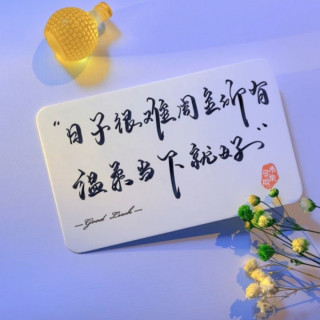 “日子很难周全所有
温柔当下就好”
—Good Luck—